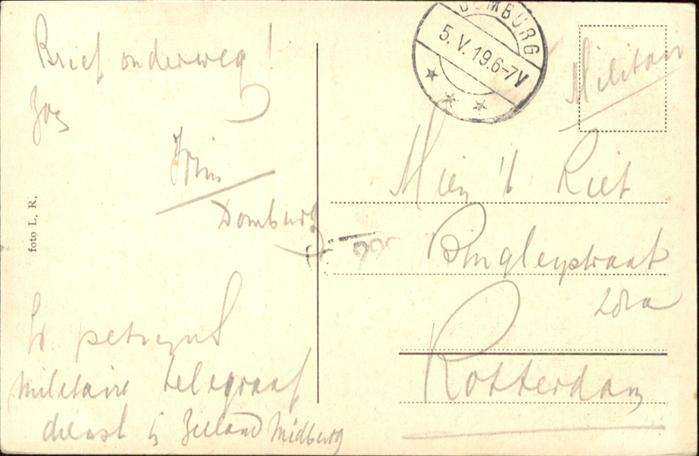 Brief onderweg!
Wim
Domburg
foto L. R.
militaire telegraaf
dienst in Zeeland Midburg
DOMBURG
5.V.19.6-7V
Militair
Mien 't Riet
Bingleystraat
20a
Rotterdam